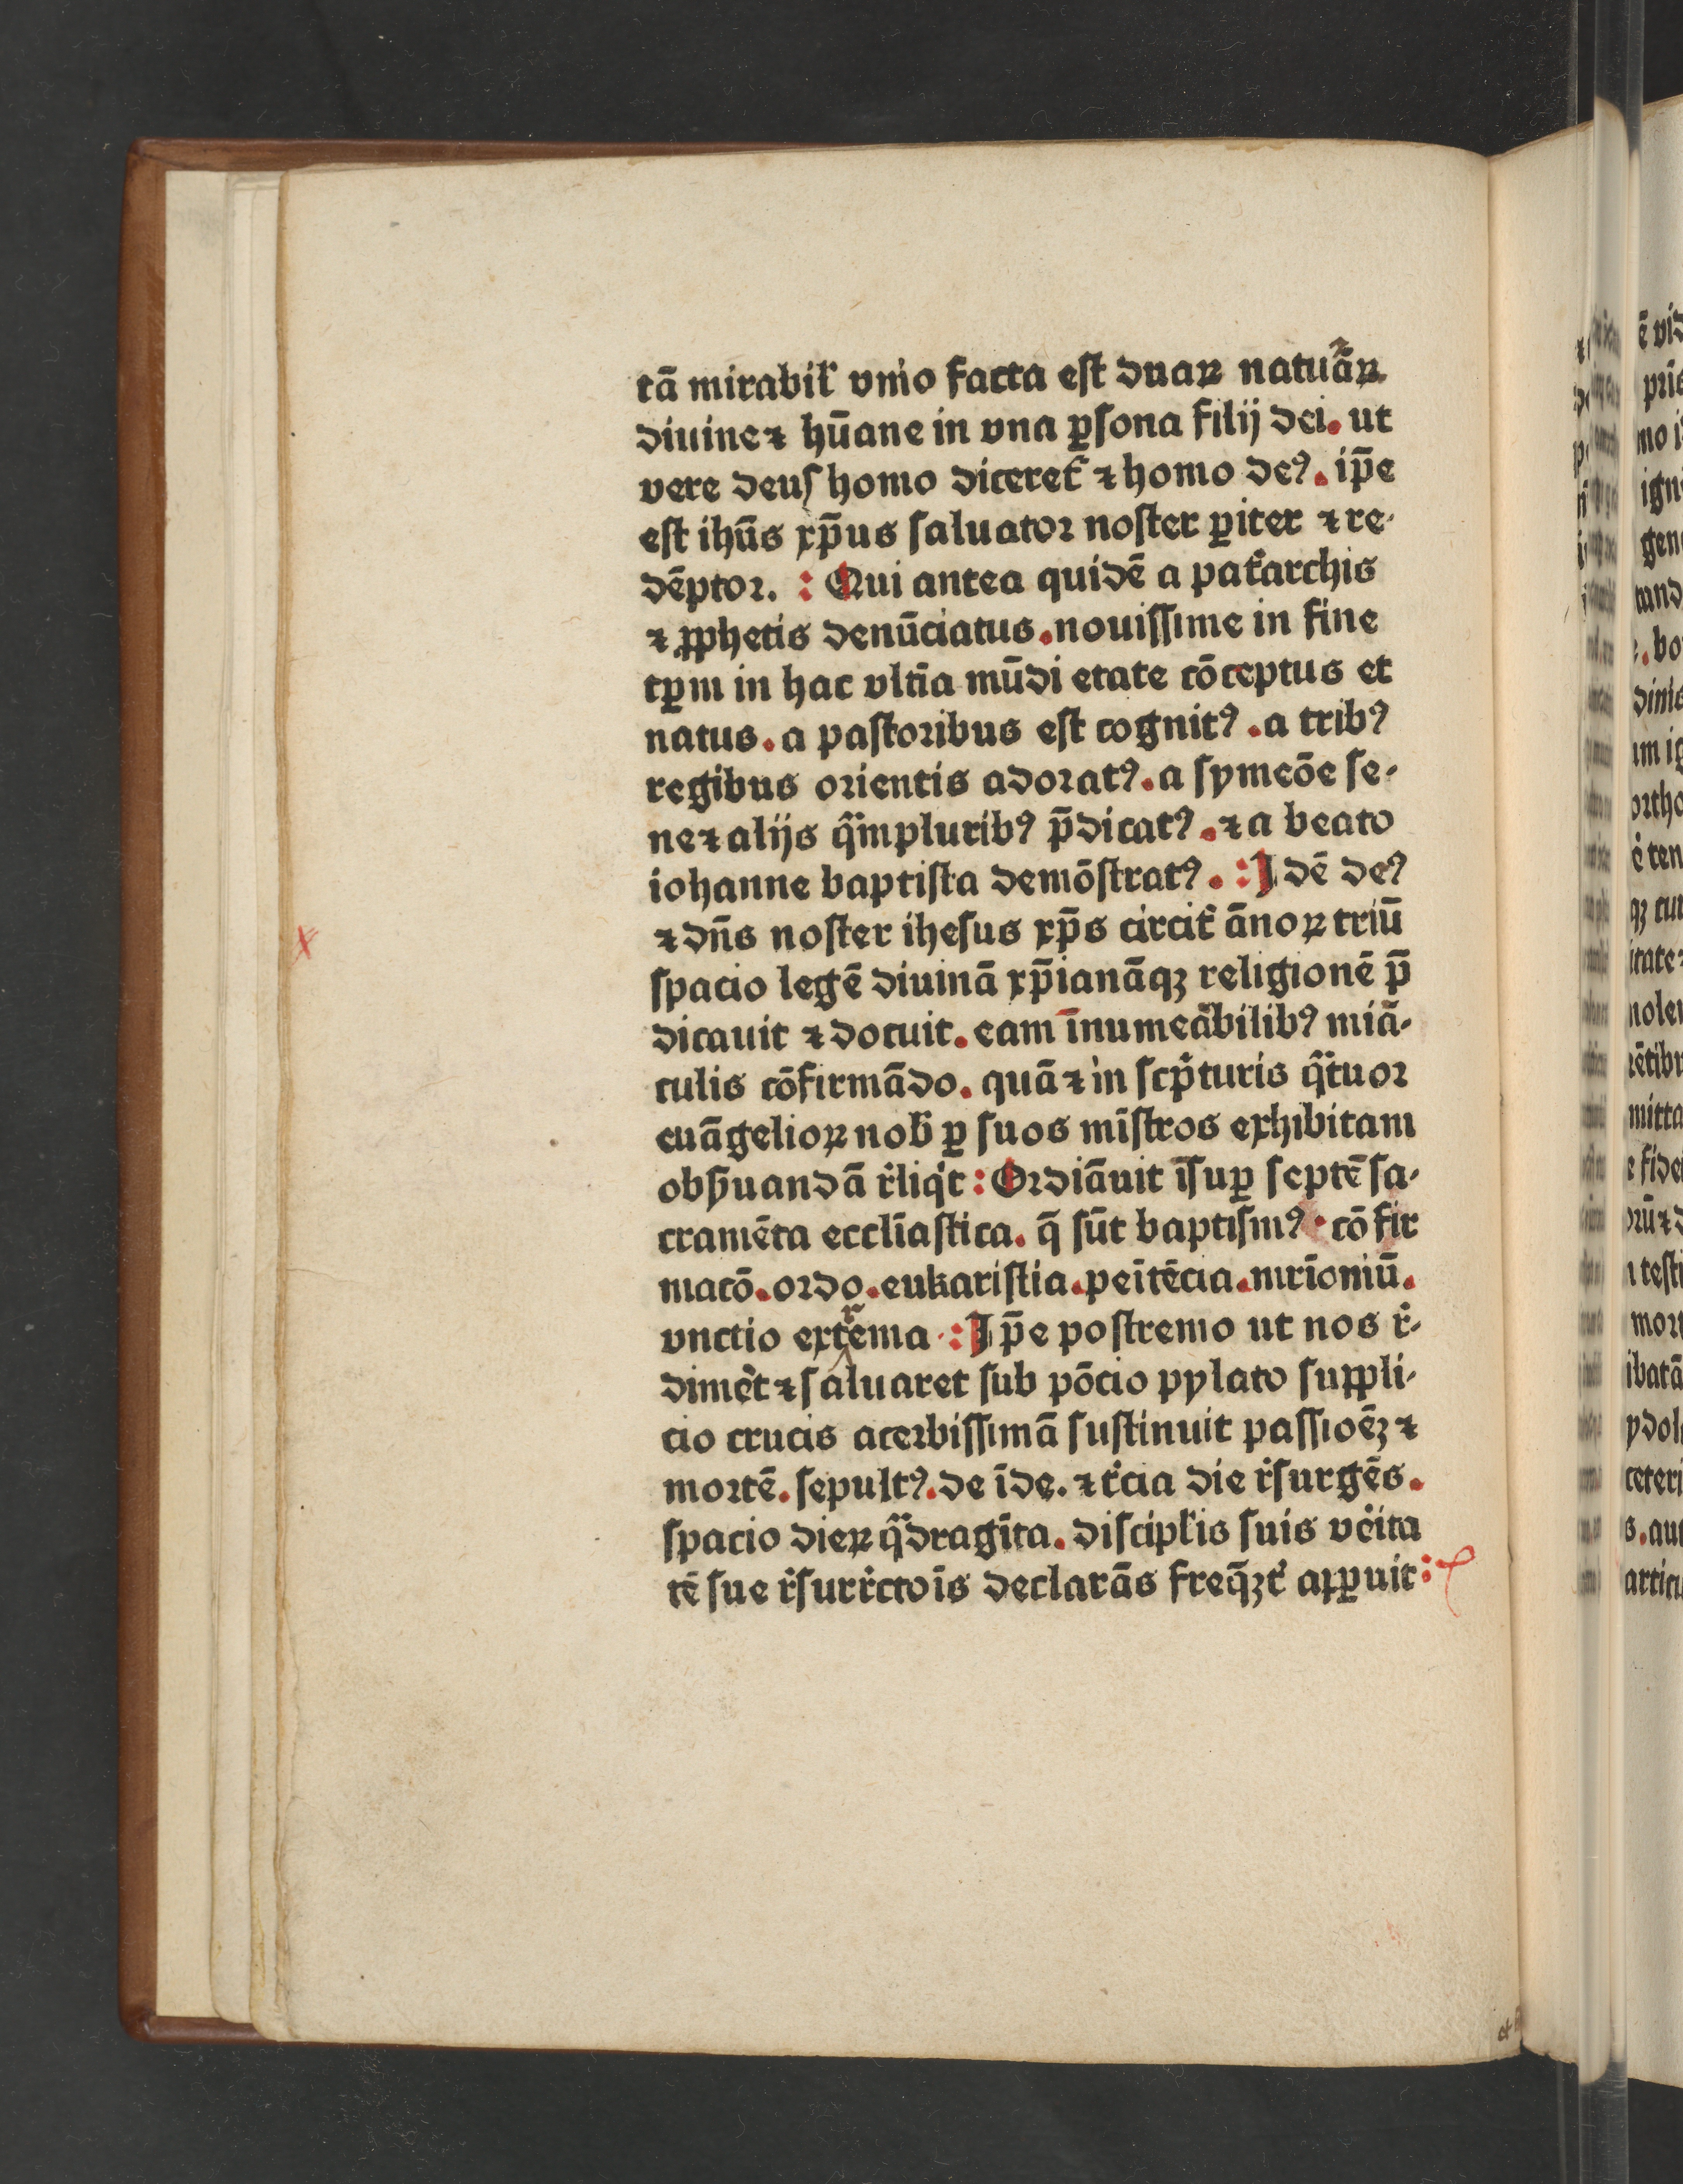 tā mirabil̛ vnio facta est duaꝝ natuāꝝ
diuine ⁊ hūane in vna ꝑsona filij dei. ut
vere deus homo diceret᷑ ⁊ homo deꝰ. ip̄e
est ihūs xp̄us saluator noster ꝑiter ⁊ re-
dēptor. : Qui antea quidē a pat᷑archis
⁊ ꝓphetis denūciatus. nouissime in fine
tꝑm in hac vltīa mūdi etate cōceptus et
natus. a pastoribus est cognitꝰ. a tribꝰ
regibus orientis adoratꝰ. a symeōe se-
ne ⁊ alijs qͣ̄mpluribꝰ p̄dicatꝰ. ⁊ a beato
iohanne baptista demōstratꝰ. : Idē deꝰ
⁊ dn̄s noster ihesus xp̄s circit᷑ ānoꝝ triū
spacio legē diuinā xp̄ianāqꝫ religionē p̄
dicauit ⁊ docuit. eam īnumeābilibꝰ miā-
culis cōfirmādo. quā ⁊ in scp̛turis qͣtuor
euāgelioꝝ nob̄ ꝑ suos mīstros exhibitam
obs̄uandā r̛liqͥt : Ordiāuit īsuꝑ septē sa-
cramēta ecclīastica. q̄ sūt baptismꝰ. cōfir
macō. ordo. eukaristia. peītēcia. mrīoniū.
vnctio extrema. : Ip̄e postremo ut nos r̛-
dimēt ⁊ saluaret sub pōcio pylato suppli-
cio crucis acerbissimā sustinuit passioēꝫ ⁊
mortē. sepultꝰ. de īde. ⁊ t᷑cia die r̛surgēs.
spacio dieꝝ qͣdragīta. discipl̛is suis ve᷑ita
tē sue r̛surr̛ctoīs declarās freq̄ꝫt᷑ apꝑuit :